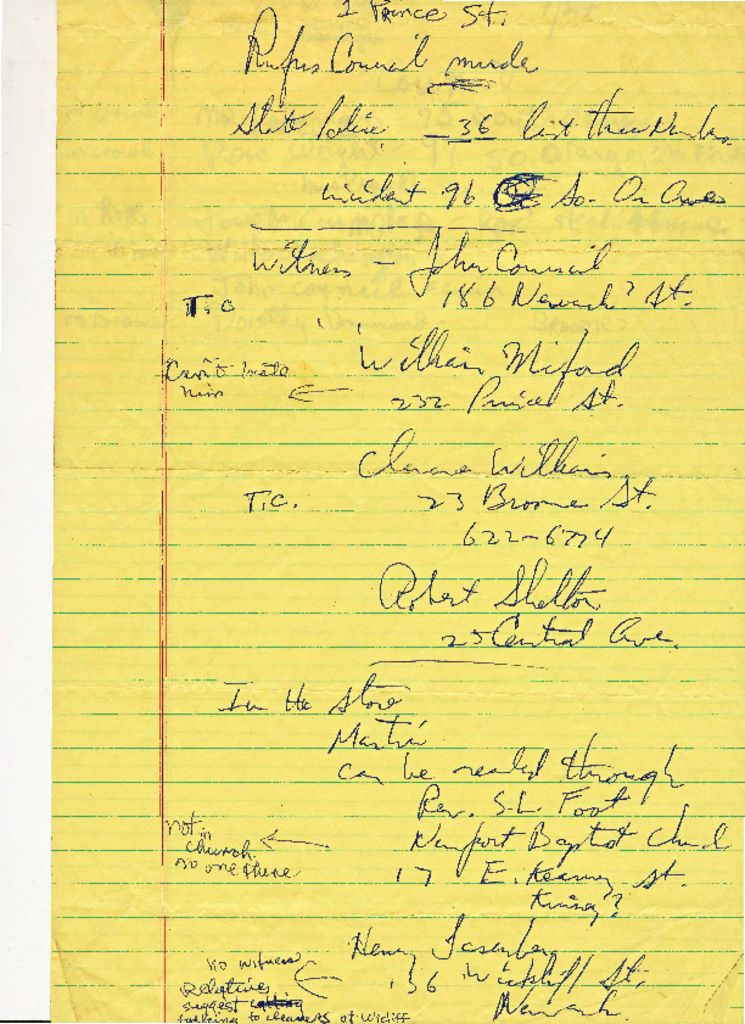 1 Prince St.
Rufus Council murder
State Police - 36 last three Numbers
incident 96 So. Or Ave
Witness - John Council
T.C 186 Newark? St.
William Miford
Can't locate
him 232 Prince St.
Williams
T.C. 23 Broome St.
622-6774
Robert Shelton
25 Central Ave.
In the Store
Martin
can be reached through
Rev. S.L. Foot
not in
church Newport Baptist
no one there 17 E. Kearney St.
Kinney?
Henry
no witness
Relatives 136 St,
suggest Newark.
talking to cleaners of Wicliff